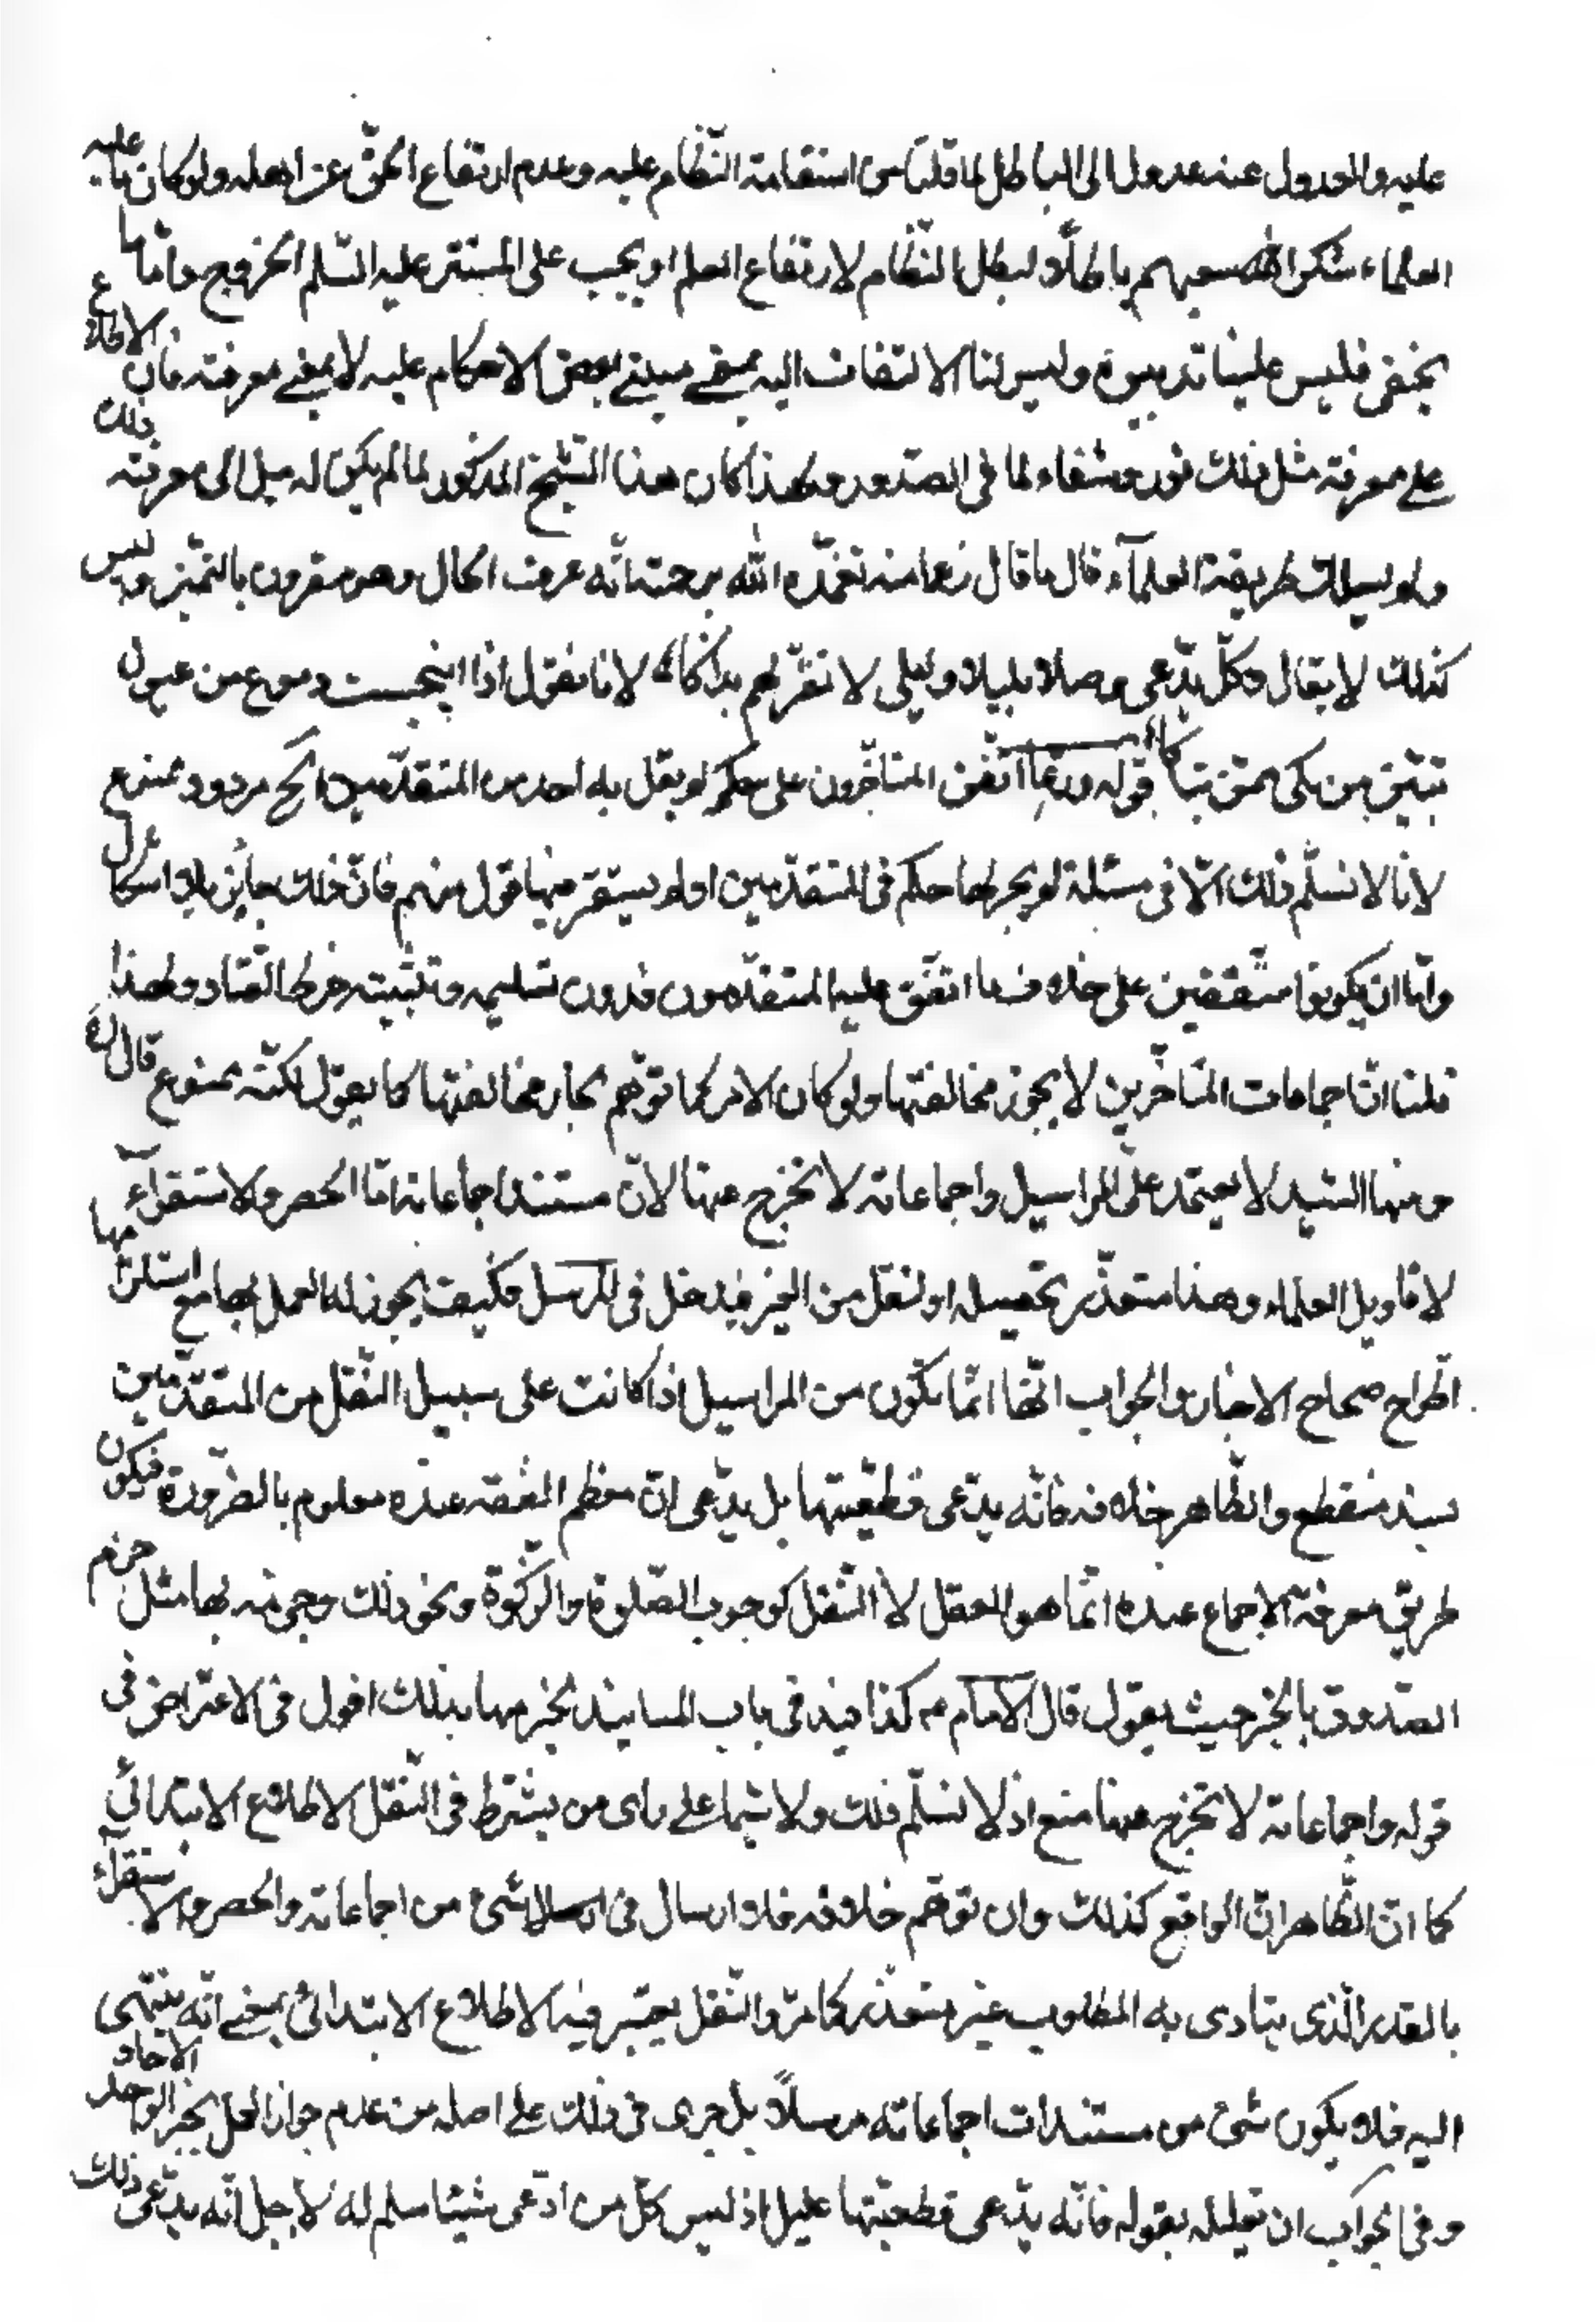 عليه والعدول عنه عدول الى الباطل لما قلنا من استقامة النّظام عليه وعدم ارتفاع الحقّ عن اهله ولو كان ما عليه
العلماء شكر الله سعيهم باطلًا لبطل النّظام لارتفاع العلم او يجب على المستتر عليه السّلم الخروج وامّا ما
يختفى فليس علينا تدبيره وليس لنا الالتفات اليه بمعنى يبتنى بعض الاحكام عليه لا بمعنى معرفته فان الاطلاع
على معرفة مثل ذلك نور وشفاء لما فى الصّدور ولهذا كان هذا الشّيخ المذكور لما لم يكن له ميل الى معرفة ذلك
ولم يسلك طريقة العلمآء قال ما قال زعما منه تغمّده الله برحمته انّه عرف الحال وهو مقرون بالتّميّز وليس
كذلك لا يقال وكلّ يدّعى وصلا بليلا وليلى لا تقرّ لهم بذاكا لانا نقول اذا انبجست دموع من عيون
تبيّن من بكى ممّن تباكا قوله وربّما اتّفق المتاخّرون على حكم لم يقل به احد من المتقدّمين الخ مردود ممنوع
لانا لا نسلّم ذلك الّا فى مسئلة لم يجر لها حكم فى المتقدّمين او لم يستقر فيها قول منهم فانّ ذلك جائز بلا اشكال
وامّا ان يكونوا متّفقين على خلاف ما اتّفق عليه المتقدّمون فدون تسليمه وتثبيته خرط القتاد ولهذا
قلنا انّ اجماعات المتاخّرين لا يجوز مخالفتها ولو كان الامر كما توهّم لجاز مخالفتها كما يقول لكنّه ممنوع قال ره
ومنها السّيد لا يعتمد على المراسيل واجماعاته لا تخرج عنها لانّ مستند اجماعاته امّا الحصر والاستقرآء
لاقاويل العلماء وهذا متعذّر تحصيله او لنقل من الغير فيدخل فى المرسل فكيف يجوز له العمل بها مع استلزامها
اطّراح صحاح الاخبار والجواب انّها انّما تكون من المراسيل اذا كانت على سبيل النّقل من المتقدّمين
بسند منقطع والظّاهر خلافه فانّه يدّعى قطعيّتها بل يدّعى انّ معظم الفقه عنده معلوم بالضّرورة فيكون
طريق معرفة الاجماع عنده انّما هو العقل لا النّقل كوجوب الصّلوة والزّكوة ونحو ذلك وجزمه بها مثل جزم
الصّدوق بالخبر حيث يقول قال الامام ع كذا فيذ فى باب المسانيد لجزمها بذلك اقول فى الاعتراض فى
قوله واجماعاته لا تخرج عنها منع اذ لا نسلّم ذلك ولا سيّما على راى من يشترط فى النّقل الاطلاع الابتدائى
كما انّ الظّاهر انّ الواقع كذلك وان توهّم خلافه فلا ارسال فى ارسلا شئ من اجماعاته والحصر والاستقرآء
بالقدر الّذى يتادى به المطلوب غير متعذّر كما مرّ والنّقل يعتبر فيه الاطلاع الابتدائى بمعنى انّه ينتهى
اليه فلا يكون شئ من مستندات اجماعاته مرسلًا بل جرى فى ذلك على اصله من عدم جواز العمل بخبر الواحد الاحاد
وفى الجواب ان تعليله بقوله فانّه يدّعى قطعيّتها عليل اذ ليس كلّ من ادّعى شيئا سلم له لاجل انّه يدّعى ذلك